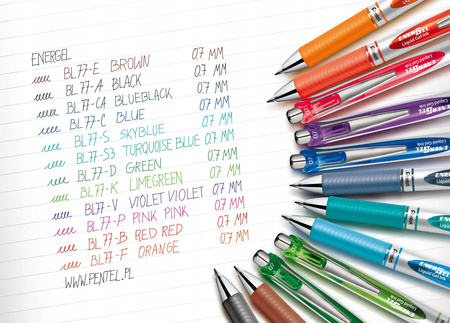 ENERGEL
BL77-E BROWN 0.7 MM
BL77-A BLACK 0.7 MM
BL77-CA BLUEBLACK 0.7 MM
BL77-C BLUE 0.7 MM
BL77-S SKYBLUE 0.7 MM
BL77-S3 TURQUOISE BLUE 0.7 MM
BL77-D GREEN 0.7 MM
BL77-K LIMEGREEN 0.7 MM
BL77-V VIOLET VIOLET 0.7 MM
BL77-P PINK PINK 0.7 MM
BL77-B RED RED 0.7 MM
BL77-F ORANGE 0.7 MM
WWW.PENTEL.PL
ENERGEL
Liquid Gel Ink
ENERGEL
Liquid Gel Ink
ENERGEL
Liquid Gel Ink
ENERGEL
Liquid Gel Ink
ENERGEL
Liquid Gel Ink
ENERGEL
Liquid Gel Ink
ENERGEL
Liquid Gel Ink